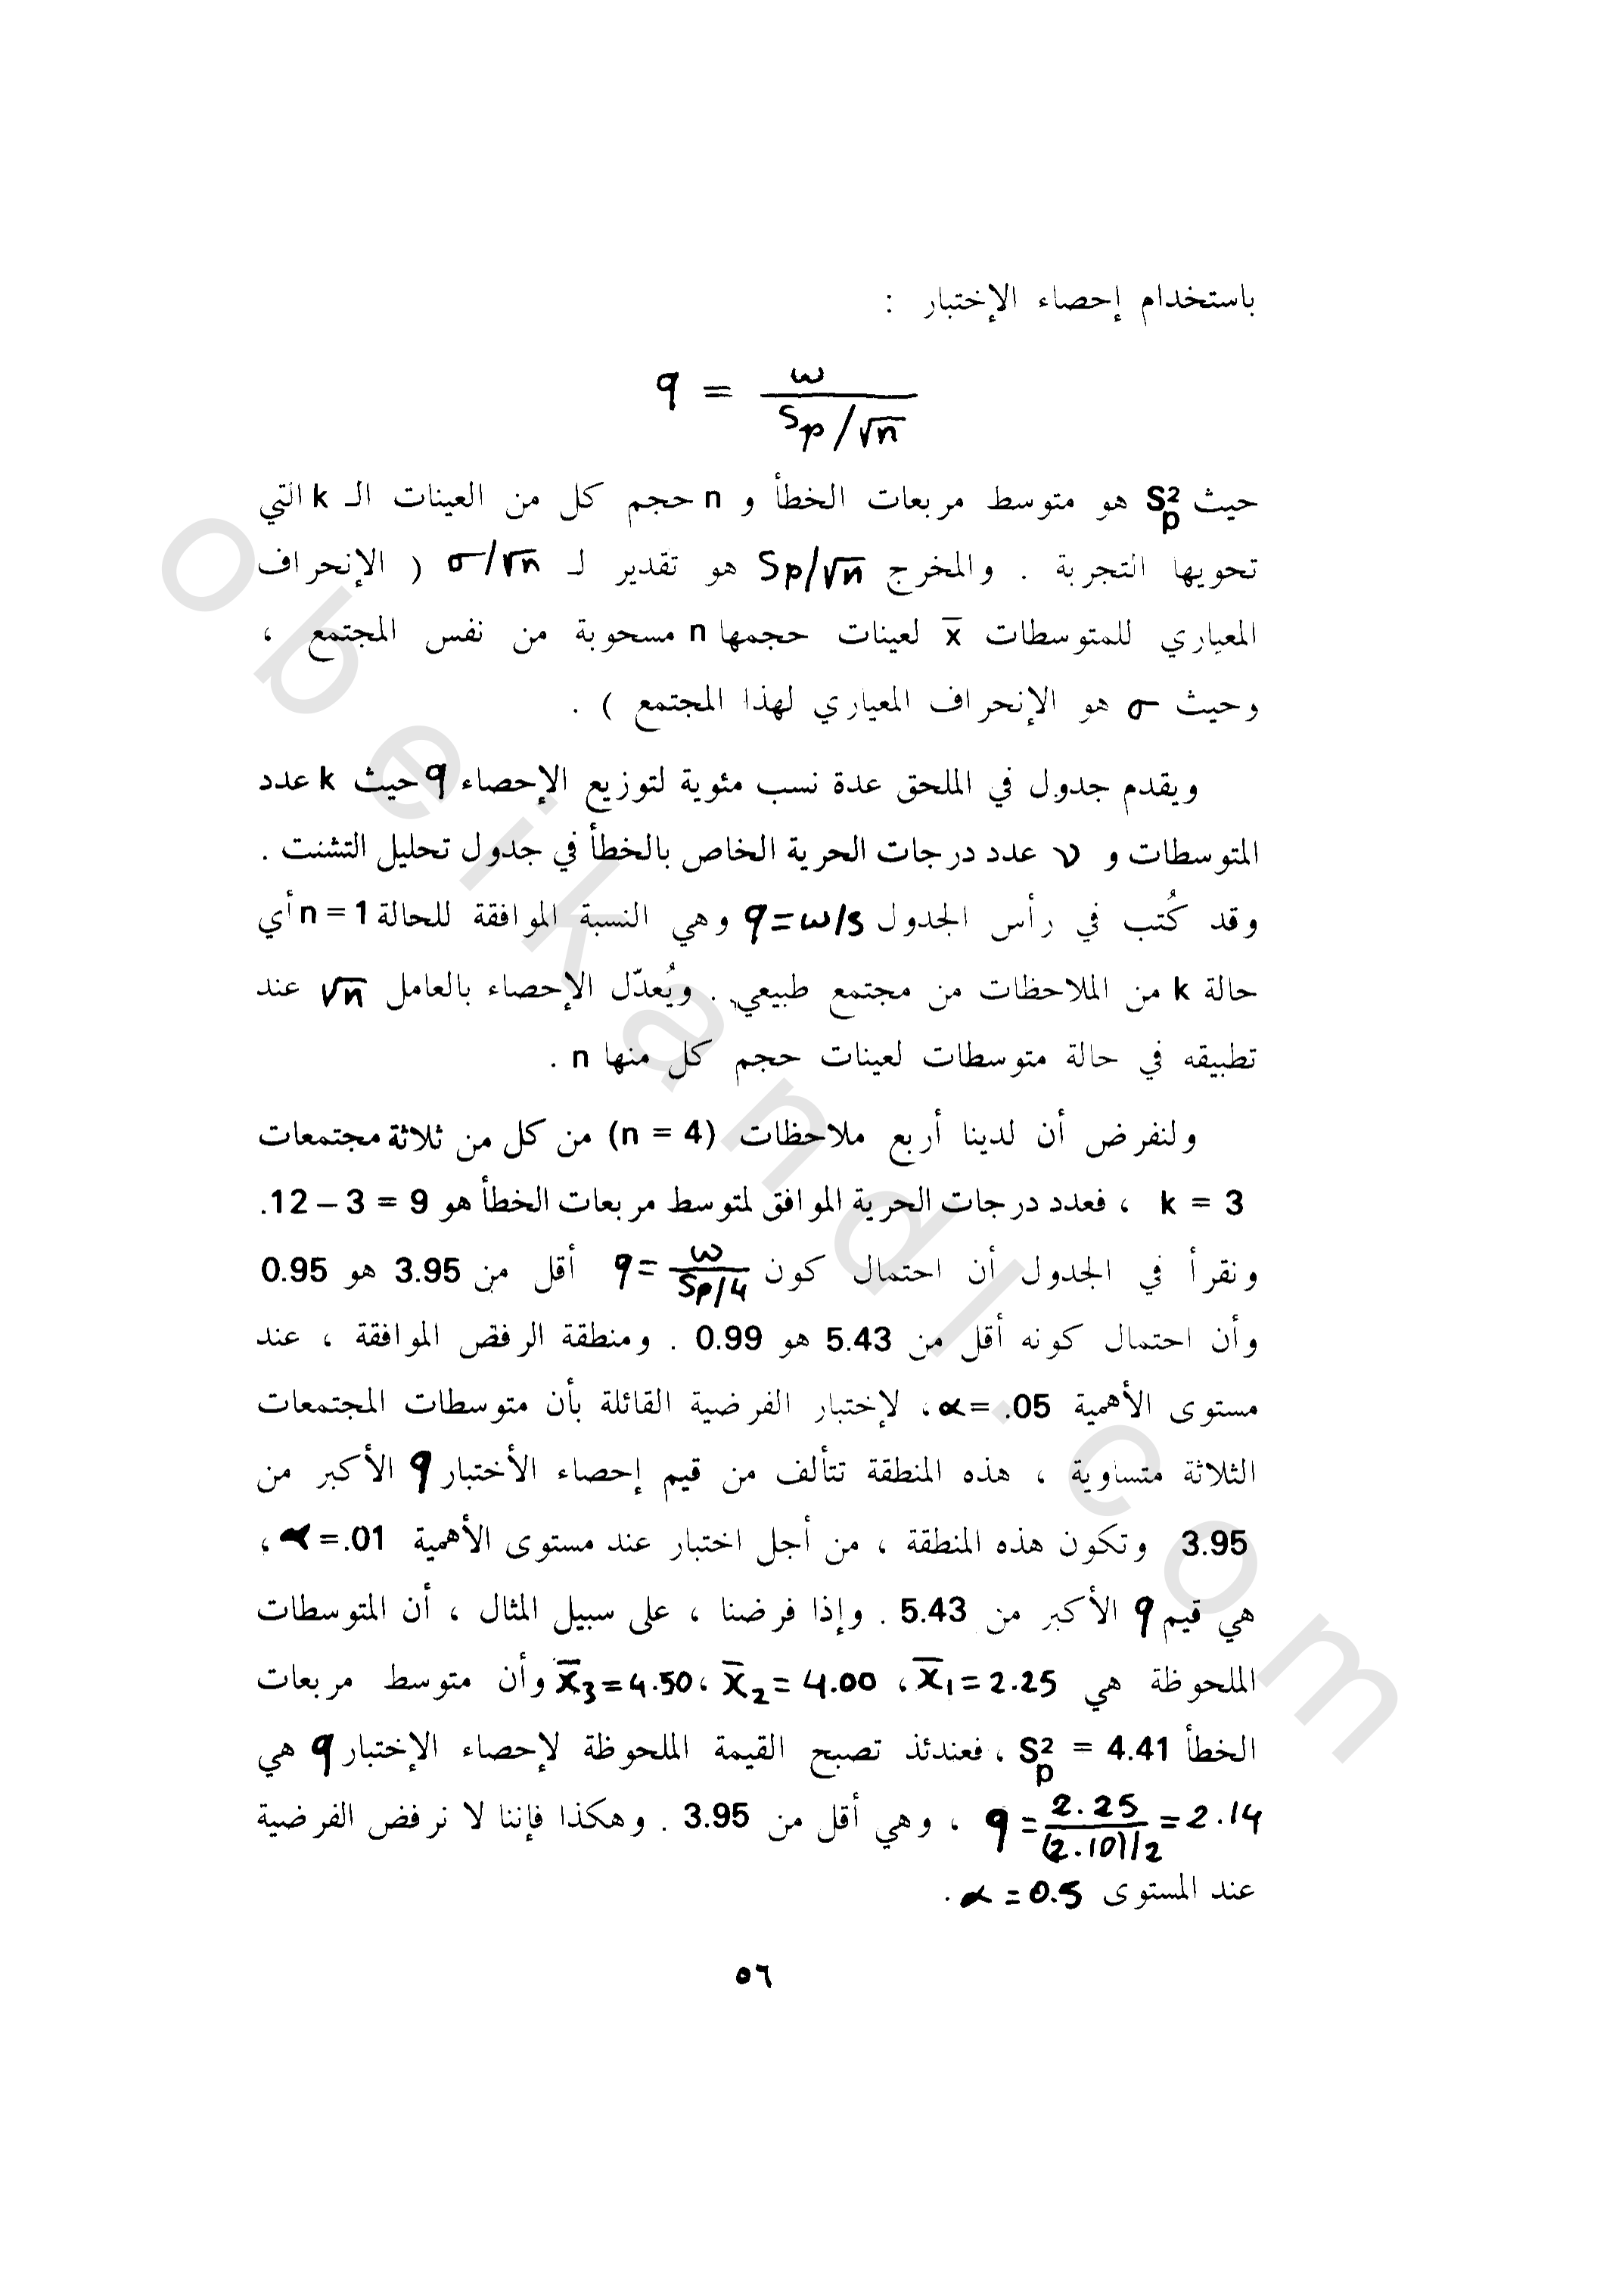 باستخدام إحصاء الإختبار :
q = w / (Sp/√n)
حيث S²p هو متوسط مربعات الخطأ و n حجم كل من العينات الـ k التي
تحويها التجربة . والمخرج Sp/√n هو تقدير لـ σ/√n ( الإنحراف
المعياري للمتوسطات x̄ لعينات حجمها n مسحوبة من نفس المجتمع ،
وحيث σ هو الإنحراف المعياري لهذا المجتمع ) .
ويقدم جدول في الملحق عدة نسب مئوية لتوزيع الإحصاء q حيث k عدد
المتوسطات و ν عدد درجات الحرية الخاص بالخطأ في جدول تحليل التشتت .
وقد كُتب في رأس الجدول q=w/s وهي النسبة الموافقة للحالة n = 1 أي
حالة k من الملاحظات من مجتمع طبيعي . ويُعدّل الإحصاء بالعامل √n عند
تطبيقه في حالة متوسطات لعينات حجم كل منها n .
ولنفرض أن لدينا أربع ملاحظات (n = 4) من كل من ثلاثة مجتمعات
k = 3 ، فعدد درجات الحرية الموافق لمتوسط مربعات الخطأ هو 12 – 3 = 9.
ونقرأ في الجدول أن احتمال كون q = w / (Sp/4) أقل من 3.95 هو 0.95
وأن احتمال كونه أقل من 5.43 هو 0.99 . ومنطقة الرفض الموافقة ، عند
مستوى الأهمية α = .05 ، لإختبار الفرضية القائلة بأن متوسطات المجتمعات
الثلاثة متساوية ، هذه المنطقة تتألف من قيم إحصاء الأختبار q الأكبر من
3.95 وتكون هذه المنطقة ، من أجل اختبار عند مستوى الأهمية α = .01 ،
هي قيم q الأكبر من 5.43 . وإذا فرضنا ، على سبيل المثال ، أن المتوسطات
الملحوظة هي x̄1 = 2.25 ، x̄2 = 4.00 ، x̄3 = 4.50 وأن متوسط مربعات
الخطأ S²p = 4.41 ، فعندئذ تصبح القيمة الملحوظة لإحصاء الإختبار q هي
q = 2.25 / (2.10)/2 = 2.14 ، وهي أقل من 3.95 . وهكذا فإننا لا نرفض الفرضية
عند المستوى α = 0.5 .
٥٦
obeikandl.com